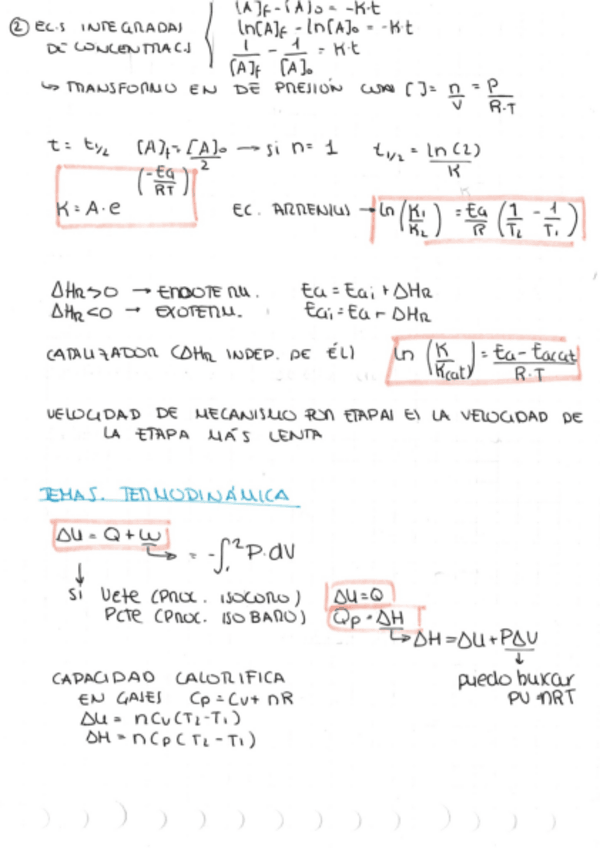 [A]f - [A]o = -K·t
② EC.S INTEGRADAS DE CONCENTRAC.S
ln[A]f - ln[A]o = -K·t
1/[A]f - 1/[A]o = K·t
↳ TRANSFORMO EN DE PRESIÓN CON [ ] = n/V = P/R·T
t = t1/2 [A]f = [A]o/2 → si n = 1 t1/2 = ln(2)/K
K = A·e^(-Ea/RT) EC. ARRENIUS → ln (K1/K2) = Ea/R (1/T2 - 1/T1)
ΔHR>0 → ENDOTERM. Ea = Eai + ΔHR
ΔHR<0 → EXOTERM. Eai = Ea - ΔHR
CATALIZADOR (ΔHR INDEP. DE ÉL) ln (K/Kcat) = Ea - Eacat/R·T
VELOCIDAD DE MECANISMO POR ETAPAS ES LA VELOCIDAD DE
LA ETAPA MÁS LENTA
TEMA5. TERMODINÁMICA
ΔU = Q + W
↳ = -∫₁² P·dV
↓
si Vcte (PROC. ISOCORO) ΔU = Q
Pcte (PROC. ISOBARO) Qp = ΔH
↳ ΔH = ΔU + PΔV
↓
CAPACIDAD CALORIFICA
puedo buscar
EN GASES Cp = Cv + nR
PV = nRT
ΔU = nCv(T2-T1)
ΔH = nCp(T2-T1)